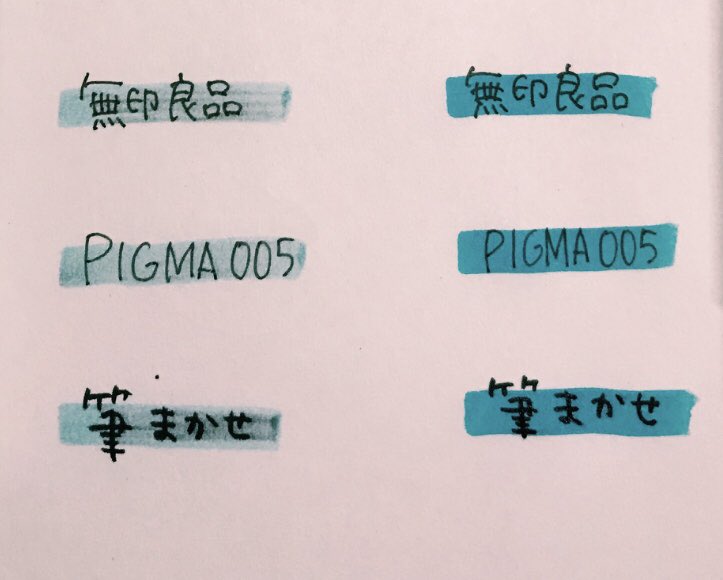 無印良品 無印良品
PIGMA 005 PIGMA 005
筆まかせ 筆まかせ